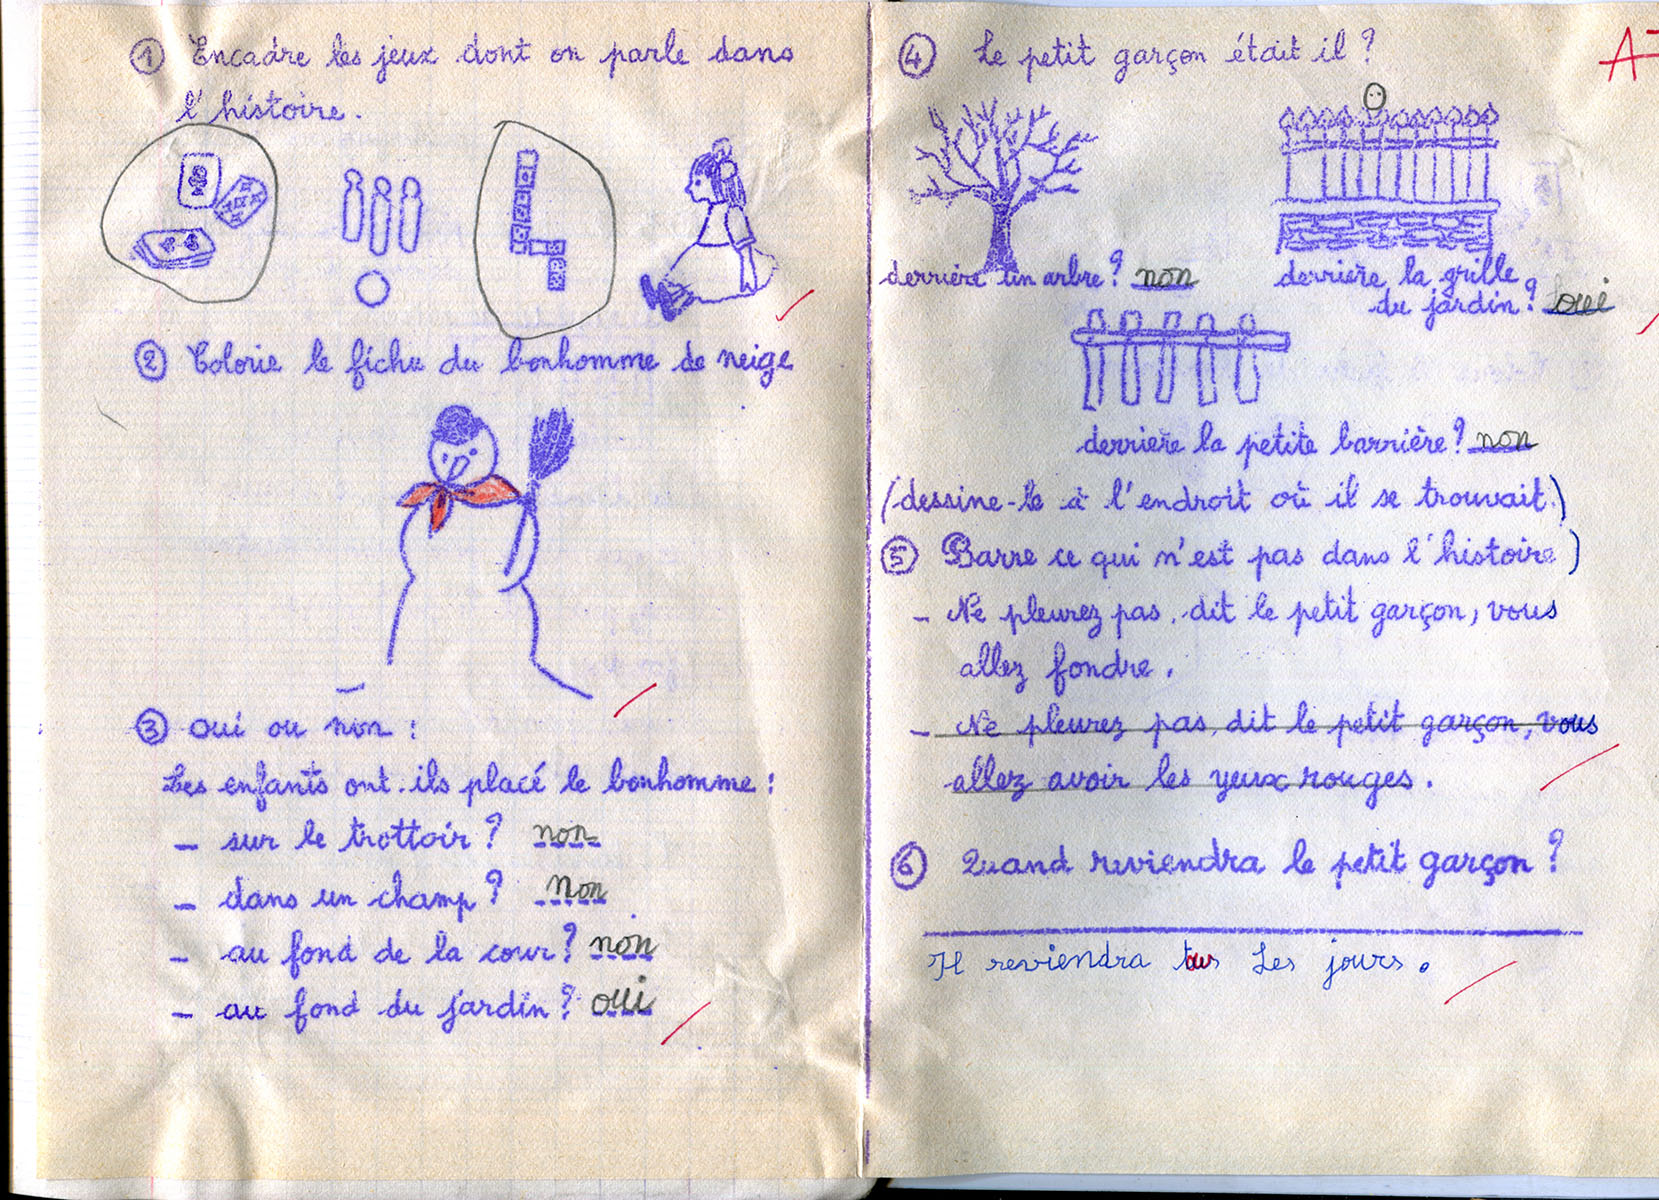 ① Encadre les jeux dont on parle dans
l'histoire.
② Colorie le fichu du bonhomme de neige
③ oui ou non :
Les enfants ont-ils placé le bonhomme :
– sur le trottoir ? non
– dans un champ ? non
– au fond de la cour ? non
– au fond du jardin ? oui
④ Le petit garçon était il ?
A
derrière un arbre ? non
derrière la grille
du jardin ? oui
derrière la petite barrière ? non
(dessine-le à l'endroit où il se trouvait.)
⑤ Barre ce qui n'est pas dans l'histoire)
– Ne pleurez pas, dit le petit garçon, vous
allez fondre.
– Ne pleurez pas, dit le petit garçon, vous
allez avoir les yeux rouges.
⑥ Quand reviendra le petit garçon ?
Il reviendra tous Les jours.